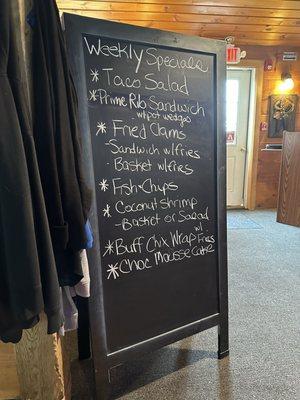 Weekly Specials
* Taco Salad
* Prime Rib Sandwich
w/pot wedges
* Fried Clams
- Sandwich w/fries
- Basket w/fries
* Fish & Chips
* Coconut Shrimp
- Basket or Salad
* Buff Chx Wrap w/ Fries
* Choc Mousse Cake